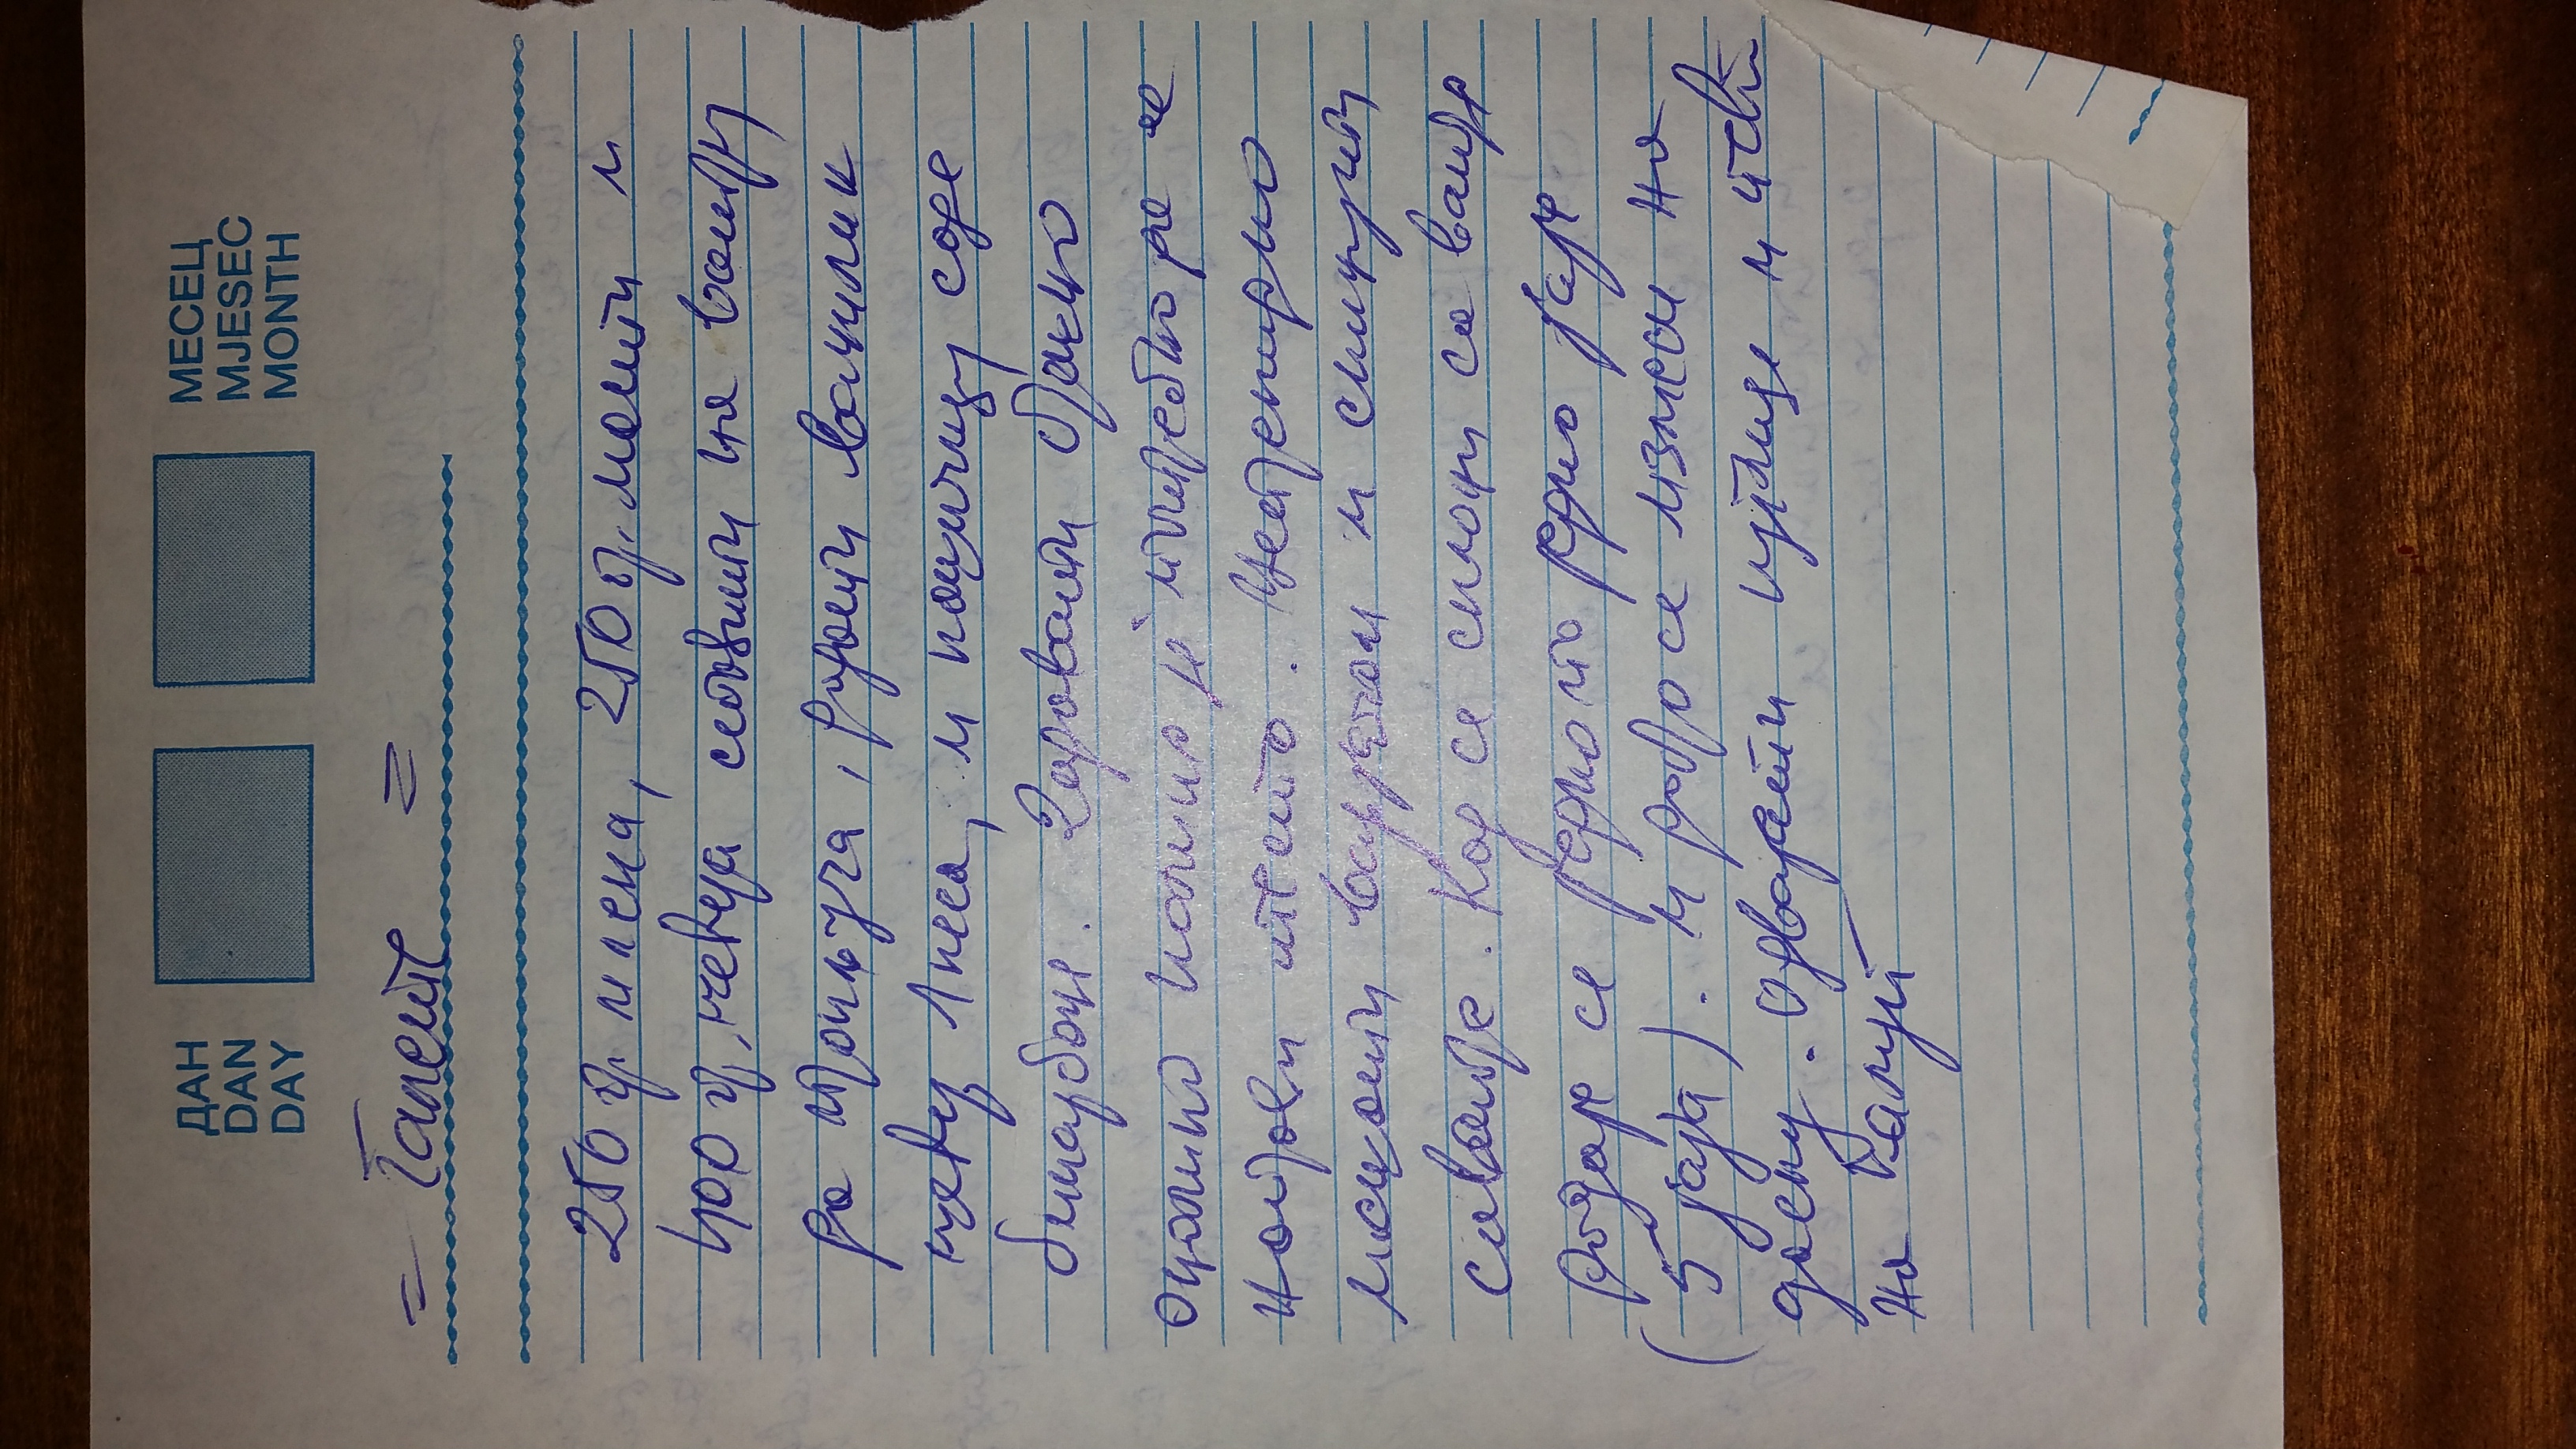 ДАН
DAN
DAY
МЕСЕЦ
MJESEC
MONTH
= Галете =
250 гр. млека, 250 гр. масти и
400 гр. шећера ставити на ватру
да прокључа, додати ванилин
шећер 1 кеса, и кашичицу соде
бикарбоне. Задовати брашно
онолико колико је потребно да се
направи тесто. Непрекидно
мешати варјачом и скинути
са ватре. Кад се склони са ватре
додаје се једно по једно јаје
(5 јаја). и добро се измеси на
даску. одвајати куглице и пећи
на калуп